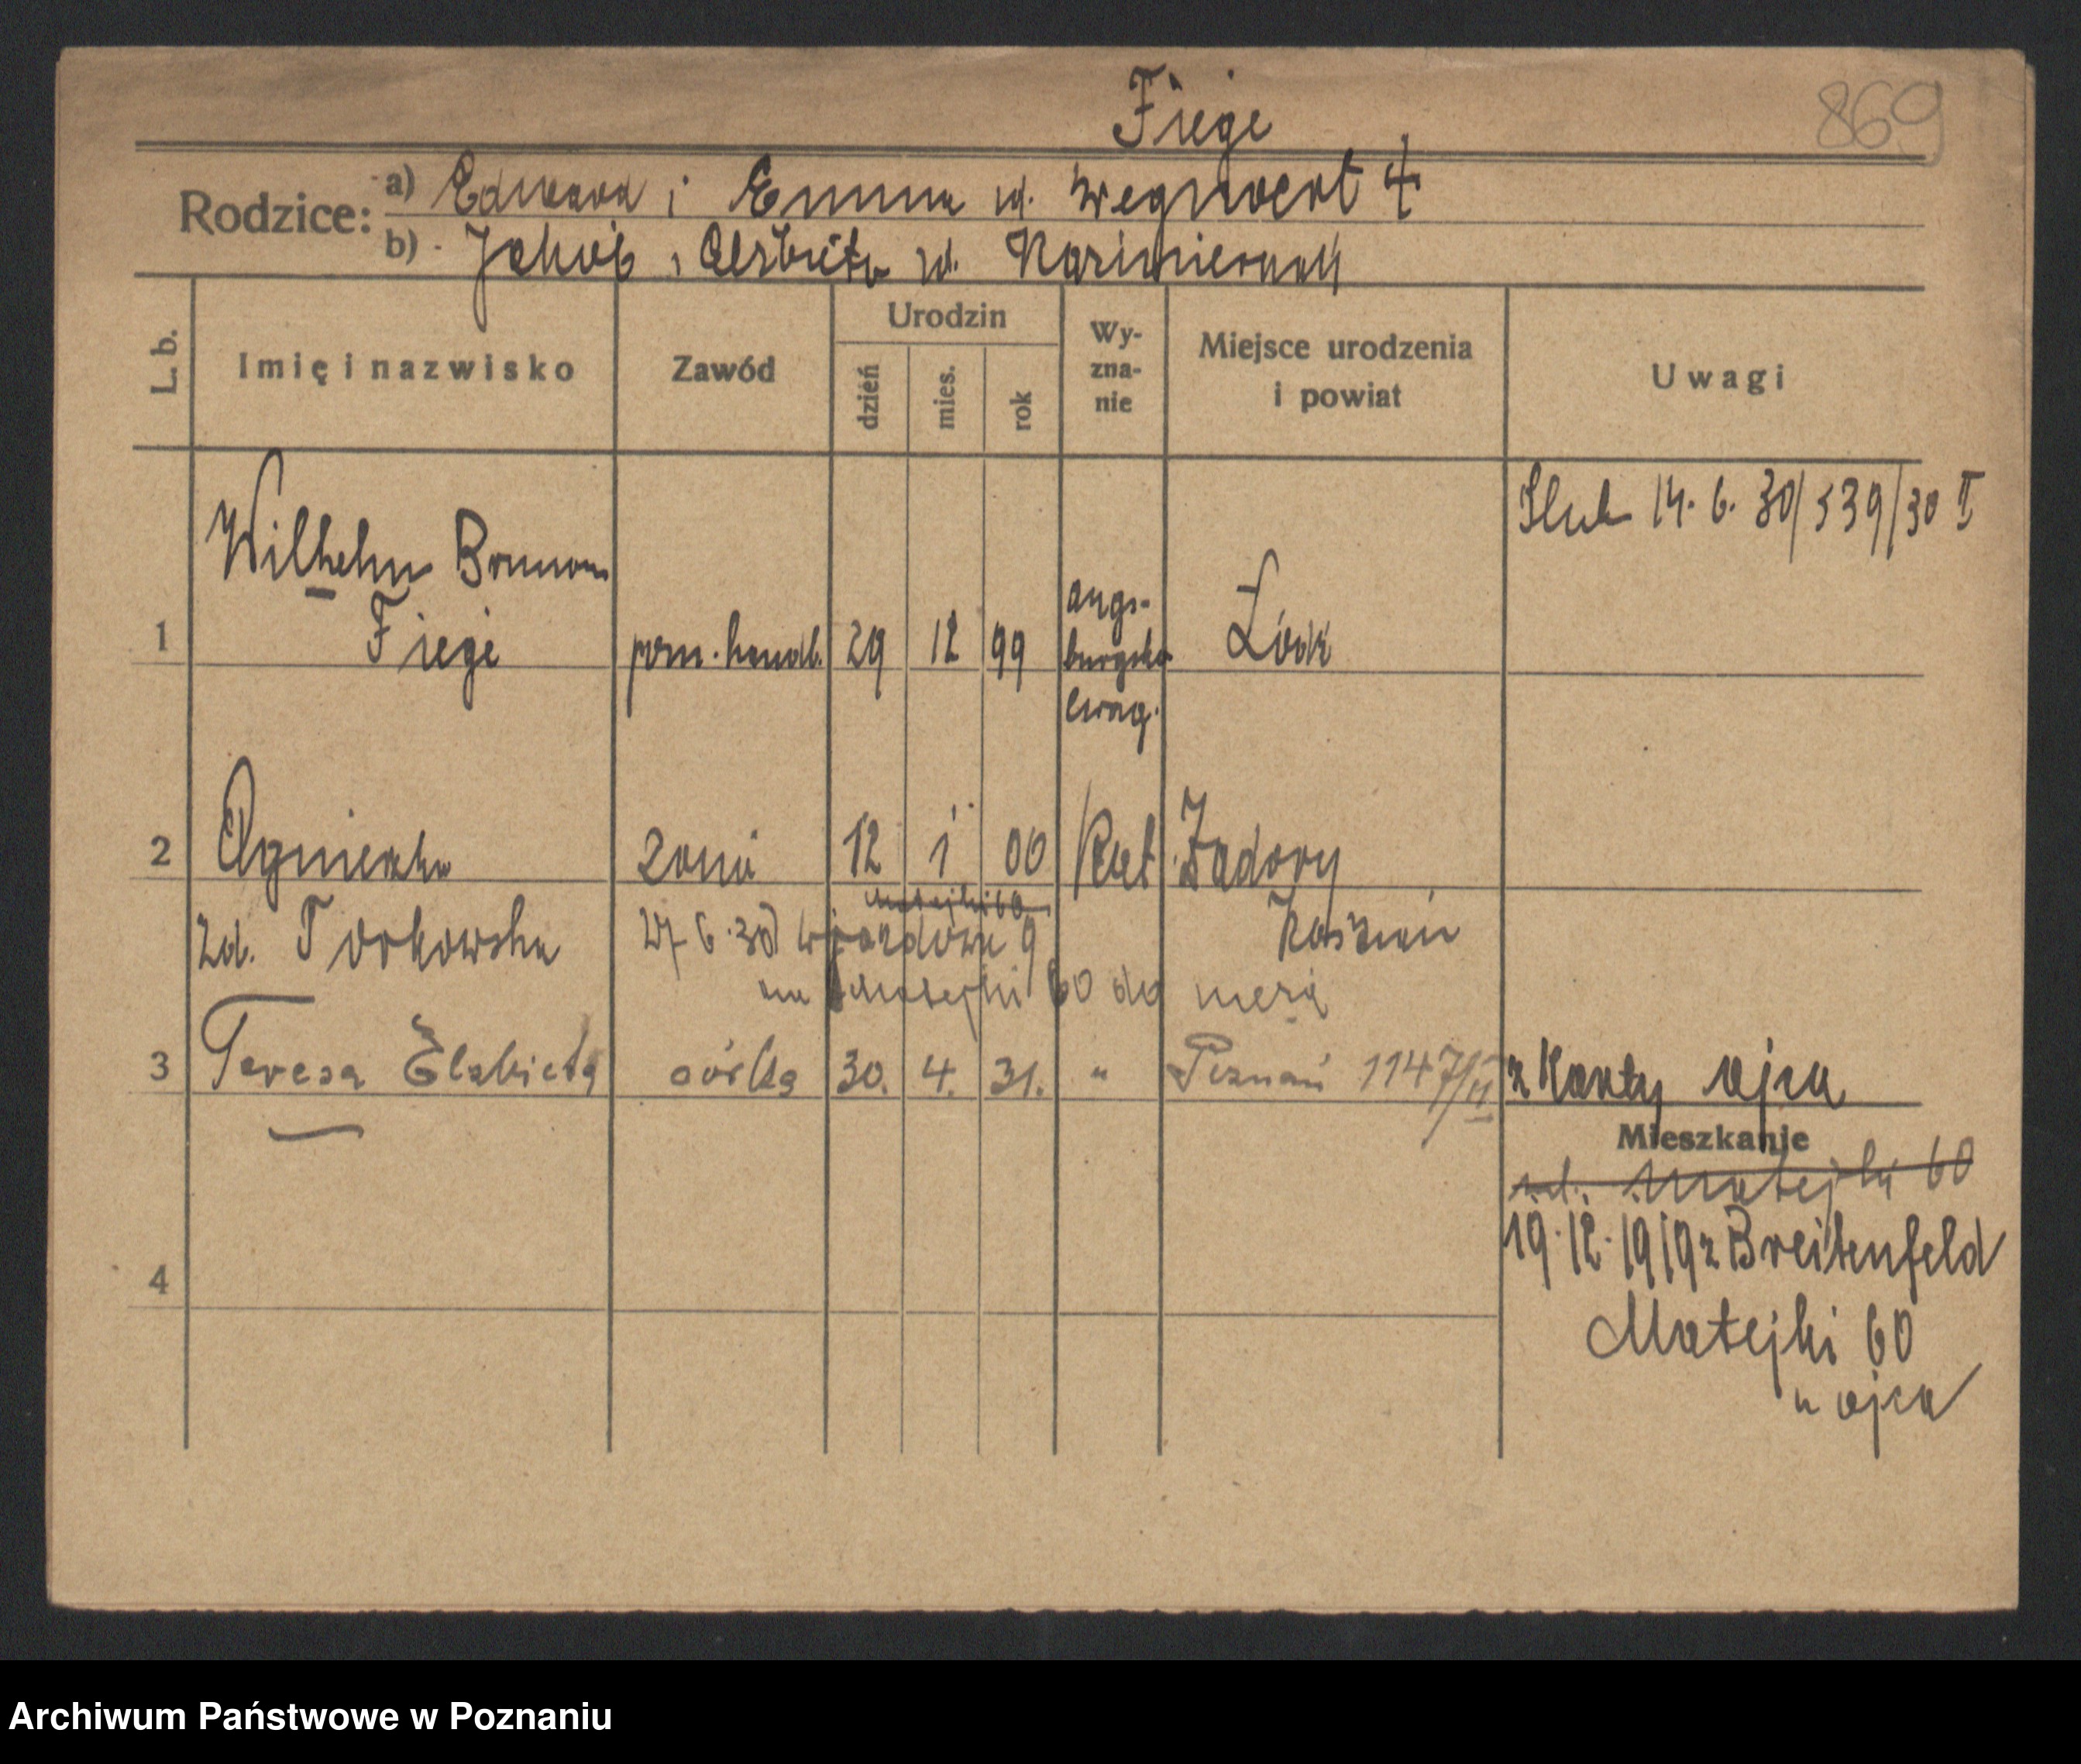 Fiege
869
Rodzice: a) Edward i Emma zd. Wegnert
b) Jakób i Elżbieta zd. Kazimierczak
L. b.
Imię i nazwisko
Zawód
Urodzin
dzień
mies.
rok
Wy-
zna-
nie
Miejsce urodzenia
i powiat
Uwagi
Ślub 14. 6. 30/539/30 II
Wilhelm Brunon
1 Fiege pom. handl. 29 12 99 augs-
burgsko
ewag.
2 Agnieszka żona 12 1 00 Kat Zadory
Matejki 60
zd. Torkowska 27 6 30 Wjazdowa 9 Kościan
na Matejki 60 do męża
3 Teresa Elżbieta córka 30. 4. 31. " Poznań 1147/II z Karty ojca
Mieszkanie
Matejki 60
19. 12. 1919 z Breitenfeld
4
Matejki 60
u ojca
Archiwum Państwowe w Poznaniu